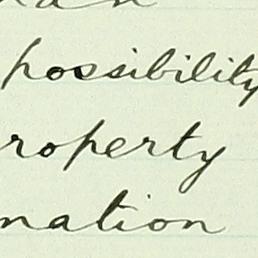 possibility
roperty
nation